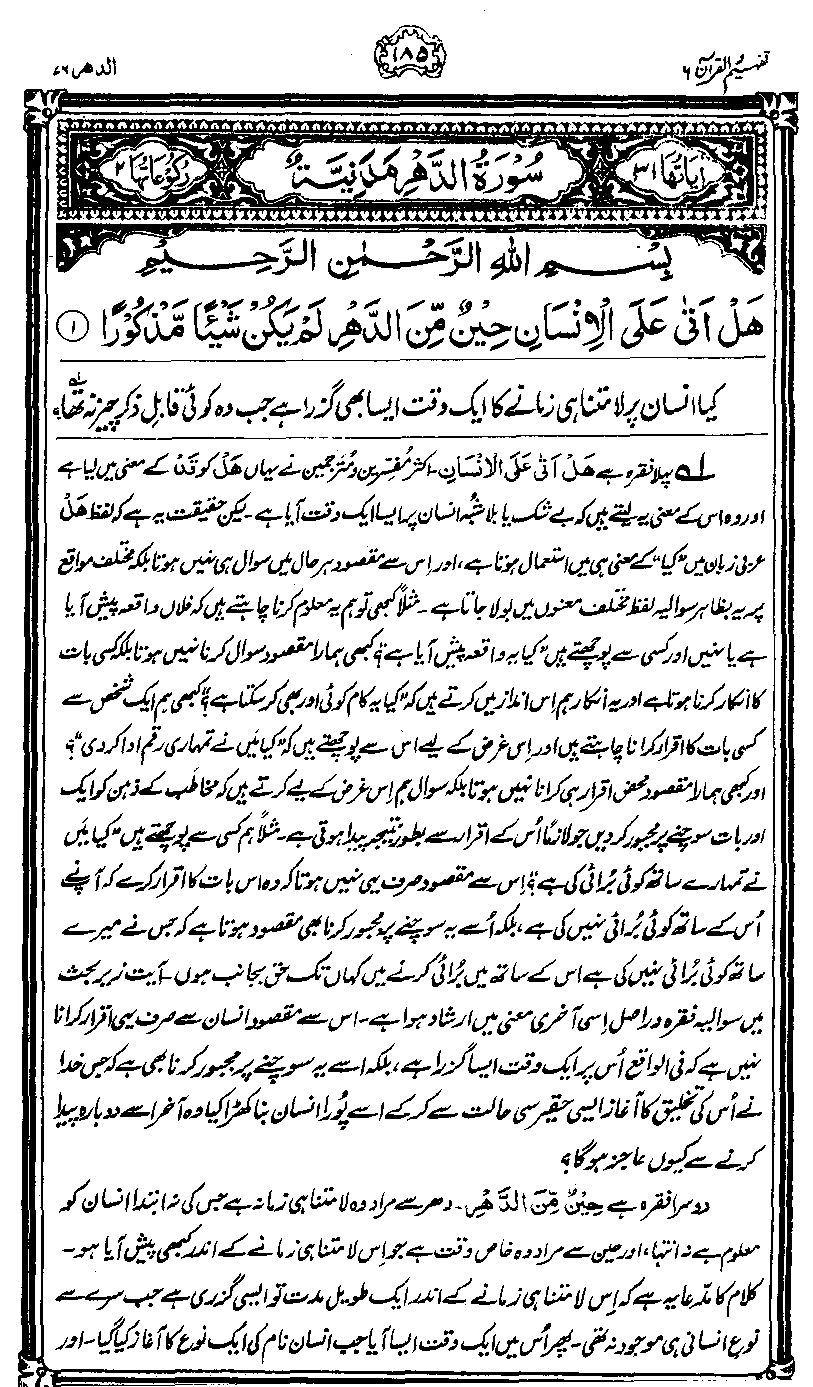 تفہیم القرآن ۶
۱۸۵
الدھر ۷۶
اٰيَاتُهَا ۳۱
سُوْرَةُ الدَّهْرِ مَدَنِيَّةٌ
رُكُوْعَاتُهَا ۲
بِسْمِ اللهِ الرَّحْمٰنِ الرَّحِيْمِ
هَلْ اَتٰى عَلَى الْاِنْسَانِ حِيْنٌ مِّنَ الدَّهْرِ لَمْ يَكُنْ شَيْئًا مَّذْكُوْرًا ①
کیا انسان پر لا متناہی زمانے کا ایک وقت ایسا بھی گزرا ہے جب وہ کوئی قابلِ ذکر چیز نہ تھا؟ ۱؎
۱؎ پہلا فقرہ ہے هَلْ اَتٰى عَلَى الْاِنْسَانِ۔ اکثر مفسّرین و مترجمین نے یہاں هَلْ کو قَدْ کے معنی میں لیا ہے
اور وہ اس کے معنی یہ لیتے ہیں کہ بے شک یا بلا شبہ انسان پر ایسا ایک وقت آیا ہے۔ لیکن حقیقت یہ ہے کہ لفظ هَلْ
عربی زبان میں ”کیا“ کے معنی ہی میں استعمال ہوتا ہے، اور اِس سے مقصود ہر حال میں سوال ہی نہیں ہوتا بلکہ مختلف مواقع
پر یہ بظاہر سوالیہ لفظ مختلف معنوں میں بولا جاتا ہے۔ مثلاً کبھی تو ہم یہ معلوم کرنا چاہتے ہیں کہ فلاں واقعہ پیش آیا
ہے یا نہیں اور کسی سے پوچھتے ہیں ”کیا یہ واقعہ پیش آیا ہے“؟ کبھی ہمارا مقصود سوال کرنا نہیں ہوتا بلکہ کسی بات
کا انکار کرنا ہوتا ہے اور یہ انکار ہم اس انداز میں کرتے ہیں کہ ”کیا یہ کام کوئی اور بھی کر سکتا ہے“؟ کبھی ہم ایک شخص سے
کسی بات کا اقرار کرانا چاہتے ہیں اور اِس غرض کے لیے اس سے پوچھتے ہیں کہ ”کیا میں نے تمہاری رقم ادا کر دی“؟
اور کبھی ہمارا مقصود محض اقرار ہی کرانا نہیں ہوتا بلکہ سوال ہم اِس غرض کے لیے کرتے ہیں کہ مخاطب کے ذہن کو ایک
اور بات سوچنے پر مجبور کر دیں جو لازماً اُس کے اقرار سے بطور نتیجہ پیدا ہوتی ہے۔ مثلاً ہم کسی سے پوچھتے ہیں ”کیا میں
نے تمہارے ساتھ کوئی بُرائی کی ہے“؟ اِس سے مقصود صرف یہی نہیں ہوتا کہ وہ اس بات کا اقرار کرے کہ آپ نے
اُس کے ساتھ کوئی بُرائی نہیں کی ہے، بلکہ اُسے یہ سوچنے پر مجبور کرنا بھی مقصود ہوتا ہے کہ جس نے میرے
ساتھ کوئی بُرائی نہیں کی ہے اس کے ساتھ میں بُرائی کرنے میں کہاں تک حق بجانب ہوں۔ آیت زیر بحث
میں سوالیہ فقرہ دراصل اِسی آخری معنی میں ارشاد ہوا ہے۔ اس سے مقصود انسان سے صرف یہی اقرار کرانا
نہیں ہے کہ فی الواقع اُس پر ایک وقت ایسا گزرا ہے، بلکہ اسے یہ سوچنے پر مجبور کرنا بھی ہے کہ جس خدا
نے اُس کی تخلیق کا آغاز ایسی حقیر سی حالت سے کر کے اسے پُورا انسان بنا کھڑا کیا وہ آخر اسے دوبارہ پیدا
کرنے سے کیوں عاجز ہوگا؟
دوسرا فقرہ ہے حِيْنٌ مِّنَ الدَّهْرِ۔ دھر سے مراد وہ لا متناہی زمانہ ہے جس کی نہ ابتدا انسان کو
معلوم ہے نہ انتہا، اور حین سے مراد وہ خاص وقت ہے جو اِس لا متناہی زمانے کے اندر کبھی پیش آیا ہو۔
کلام کا مدّعا یہ ہے کہ اِس لا متناہی زمانے کے اندر ایک طویل مدت تو ایسی گزری ہے جب سرے سے
نوعِ انسانی ہی موجود نہ تھی۔ پھر اُس میں ایک وقت ایسا آیا جب انسان نام کی ایک نوع کا آغاز کیا گیا۔ اور